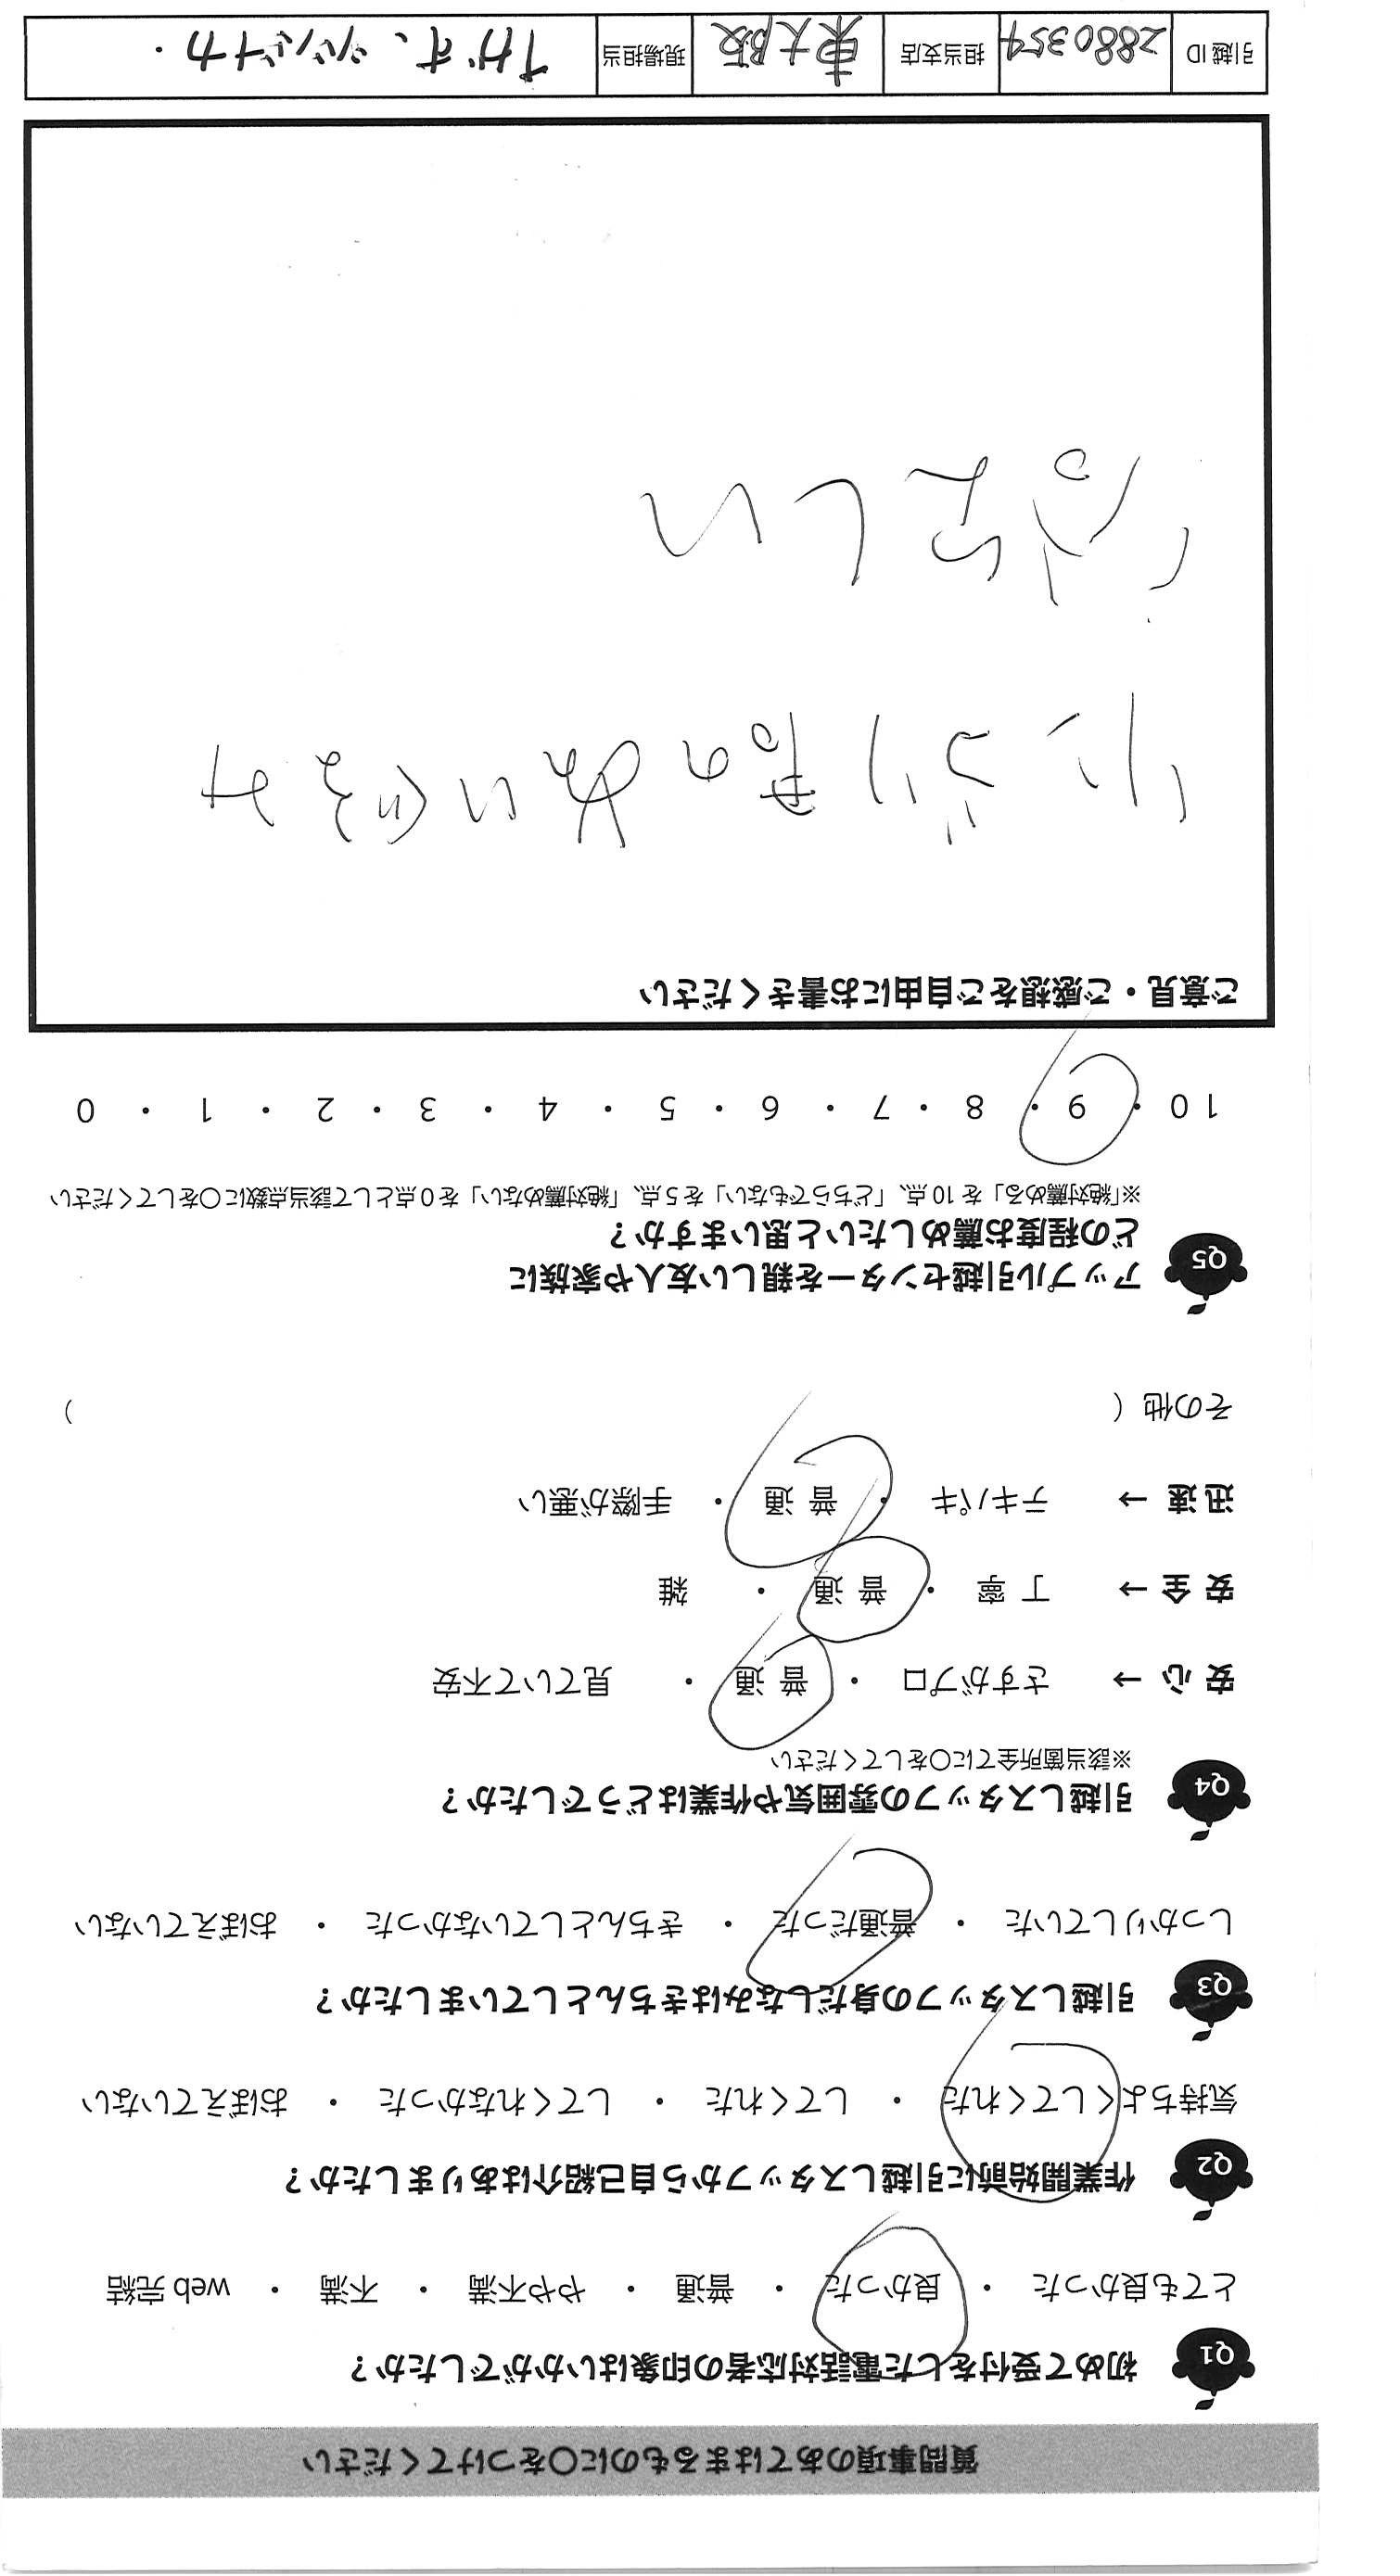 質問事項のあてはまるものに○をつけてください
Q1 初めて受付をした電話対応者の印象はいかがでしたか？
とても良かった ・ 良かった ・ 普通 ・ やや不満 ・ 不満 ・ web完結
Q2 作業開始前に引越しスタッフから自己紹介はありましたか？
気持ちよくしてくれた ・ してくれた ・ してくれなかった ・ おぼえていない
Q3 引越しスタッフの身だしなみはきちんとしていましたか？
しっかりしていた ・ 普通だった ・ きちんとしていなかった ・ おぼえていない
Q4 引越しスタッフの雰囲気や作業はどうでしたか？
※該当箇所全てに○をしてください
安心 → さすがプロ ・ 普通 ・ 見ていて不安
安全 → 丁寧 ・ 普通 ・ 雑
迅速 → テキパキ ・ 普通 ・ 手際が悪い
その他（ ）
Q5 アップル引越センターを親しい友人や家族に
どの程度お薦めしたいと思いますか？
※「絶対薦める」を10点、「どちらでもない」を5点、「絶対薦めない」を0点として該当点数に○をしてください
10 ・ 9 ・ 8 ・ 7 ・ 6 ・ 5 ・ 4 ・ 3 ・ 2 ・ 1 ・ 0
ご意見・ご感想をご自由にお書きください
引越ID 2880354 担当支店 東大阪 現場担当